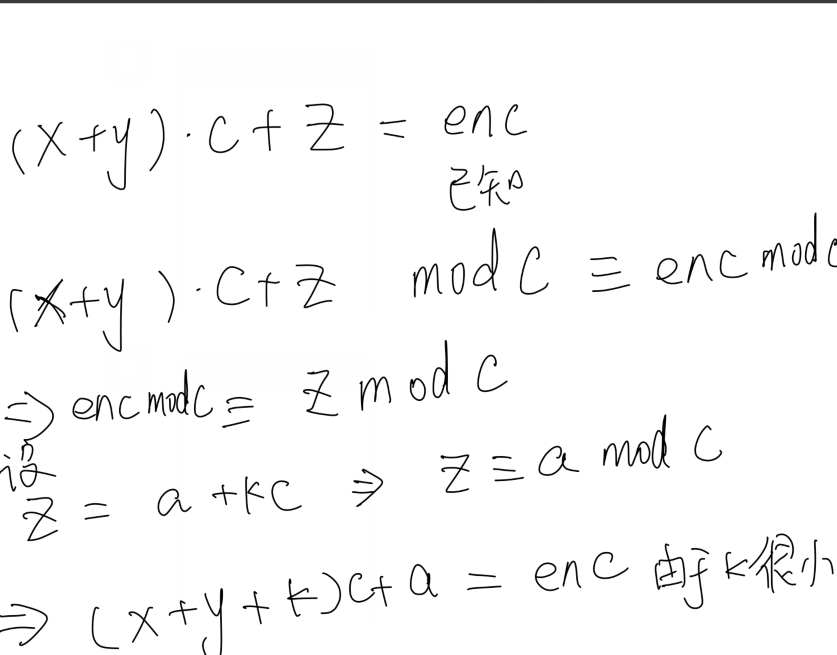 (x+y)·c+z = enc
已知
(x+y)·c+z mod c ≡ enc mod c
⇒ enc mod c ≡ z mod c
设
z = a+kc ⇒ z ≡ a mod c
⇒ (x+y+k)c+a = enc 由于k很小